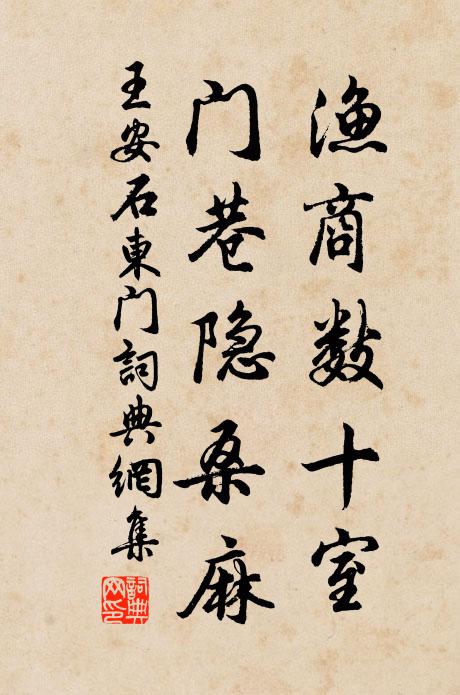 渔商数十室
门巷隐桑麻
王安石東门詞典網集
詞典网印